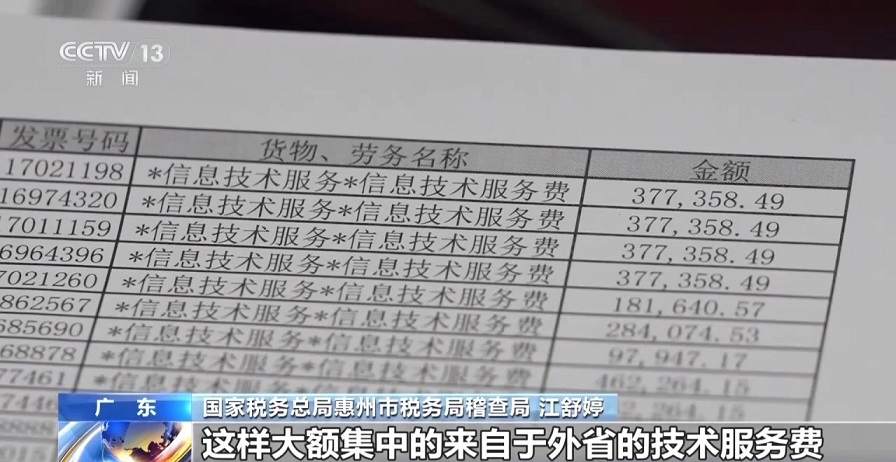 CCTV 13
新闻
发票号码 货物、劳务名称 金额
17021198 *信息技术服务*信息技术服务费 377,358.49
16974320 *信息技术服务*信息技术服务费 377,358.49
17011159 *信息技术服务*信息技术服务费 377,358.49
6964396 *信息技术服务*信息技术服务费 377,358.49
7021260 *信息技术服务*信息技术服务费 181,640.57
862567 *信息技术服务*信息技术服务费 284,074.53
685690 *信息技术服务*信息技术服务费 97,947.17
68878 *信息技术服务*信息技术服务费 462,264.15
77461
广东 国家税务总局惠州市税务局稽查局 江舒婷
这样大额集中的来自于外省的技术服务费